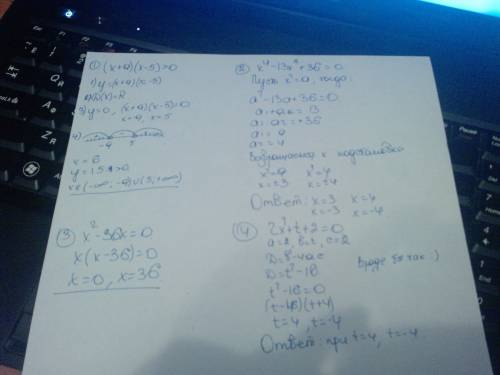 ① (x+9)(x-5)>0
1) y=(x+9)(x-5)
2) D(x)=R
3) y=0, (x+9)(x-5)=0
x=-9, x=5
4)
-9 5
x=6
y=15·1>0
x∈(-∞,-9)∪(5,+∞)
③ x²-36x=0
x(x-36)=0
x=0, x=36
② x⁴-13x²+36=0
Пусть x²=a, тогда:
a²-13a+36=0
a₁+a₂=13
a₁·a₂=+36
a₁=9
a₂=4
Возвращаемся к подстановке
x²=9 x²=4
x=±3 x=±4
Ответ: x=3 x=4
x=-3 x=-4
④ 2x²+t+2=0
a=2, b=t, c=2
D=b²-4ac
D=t²-16
t²-16=0
(t-4)(t+4)
t=4, t=-4
Ответ: при t=4, t=-4